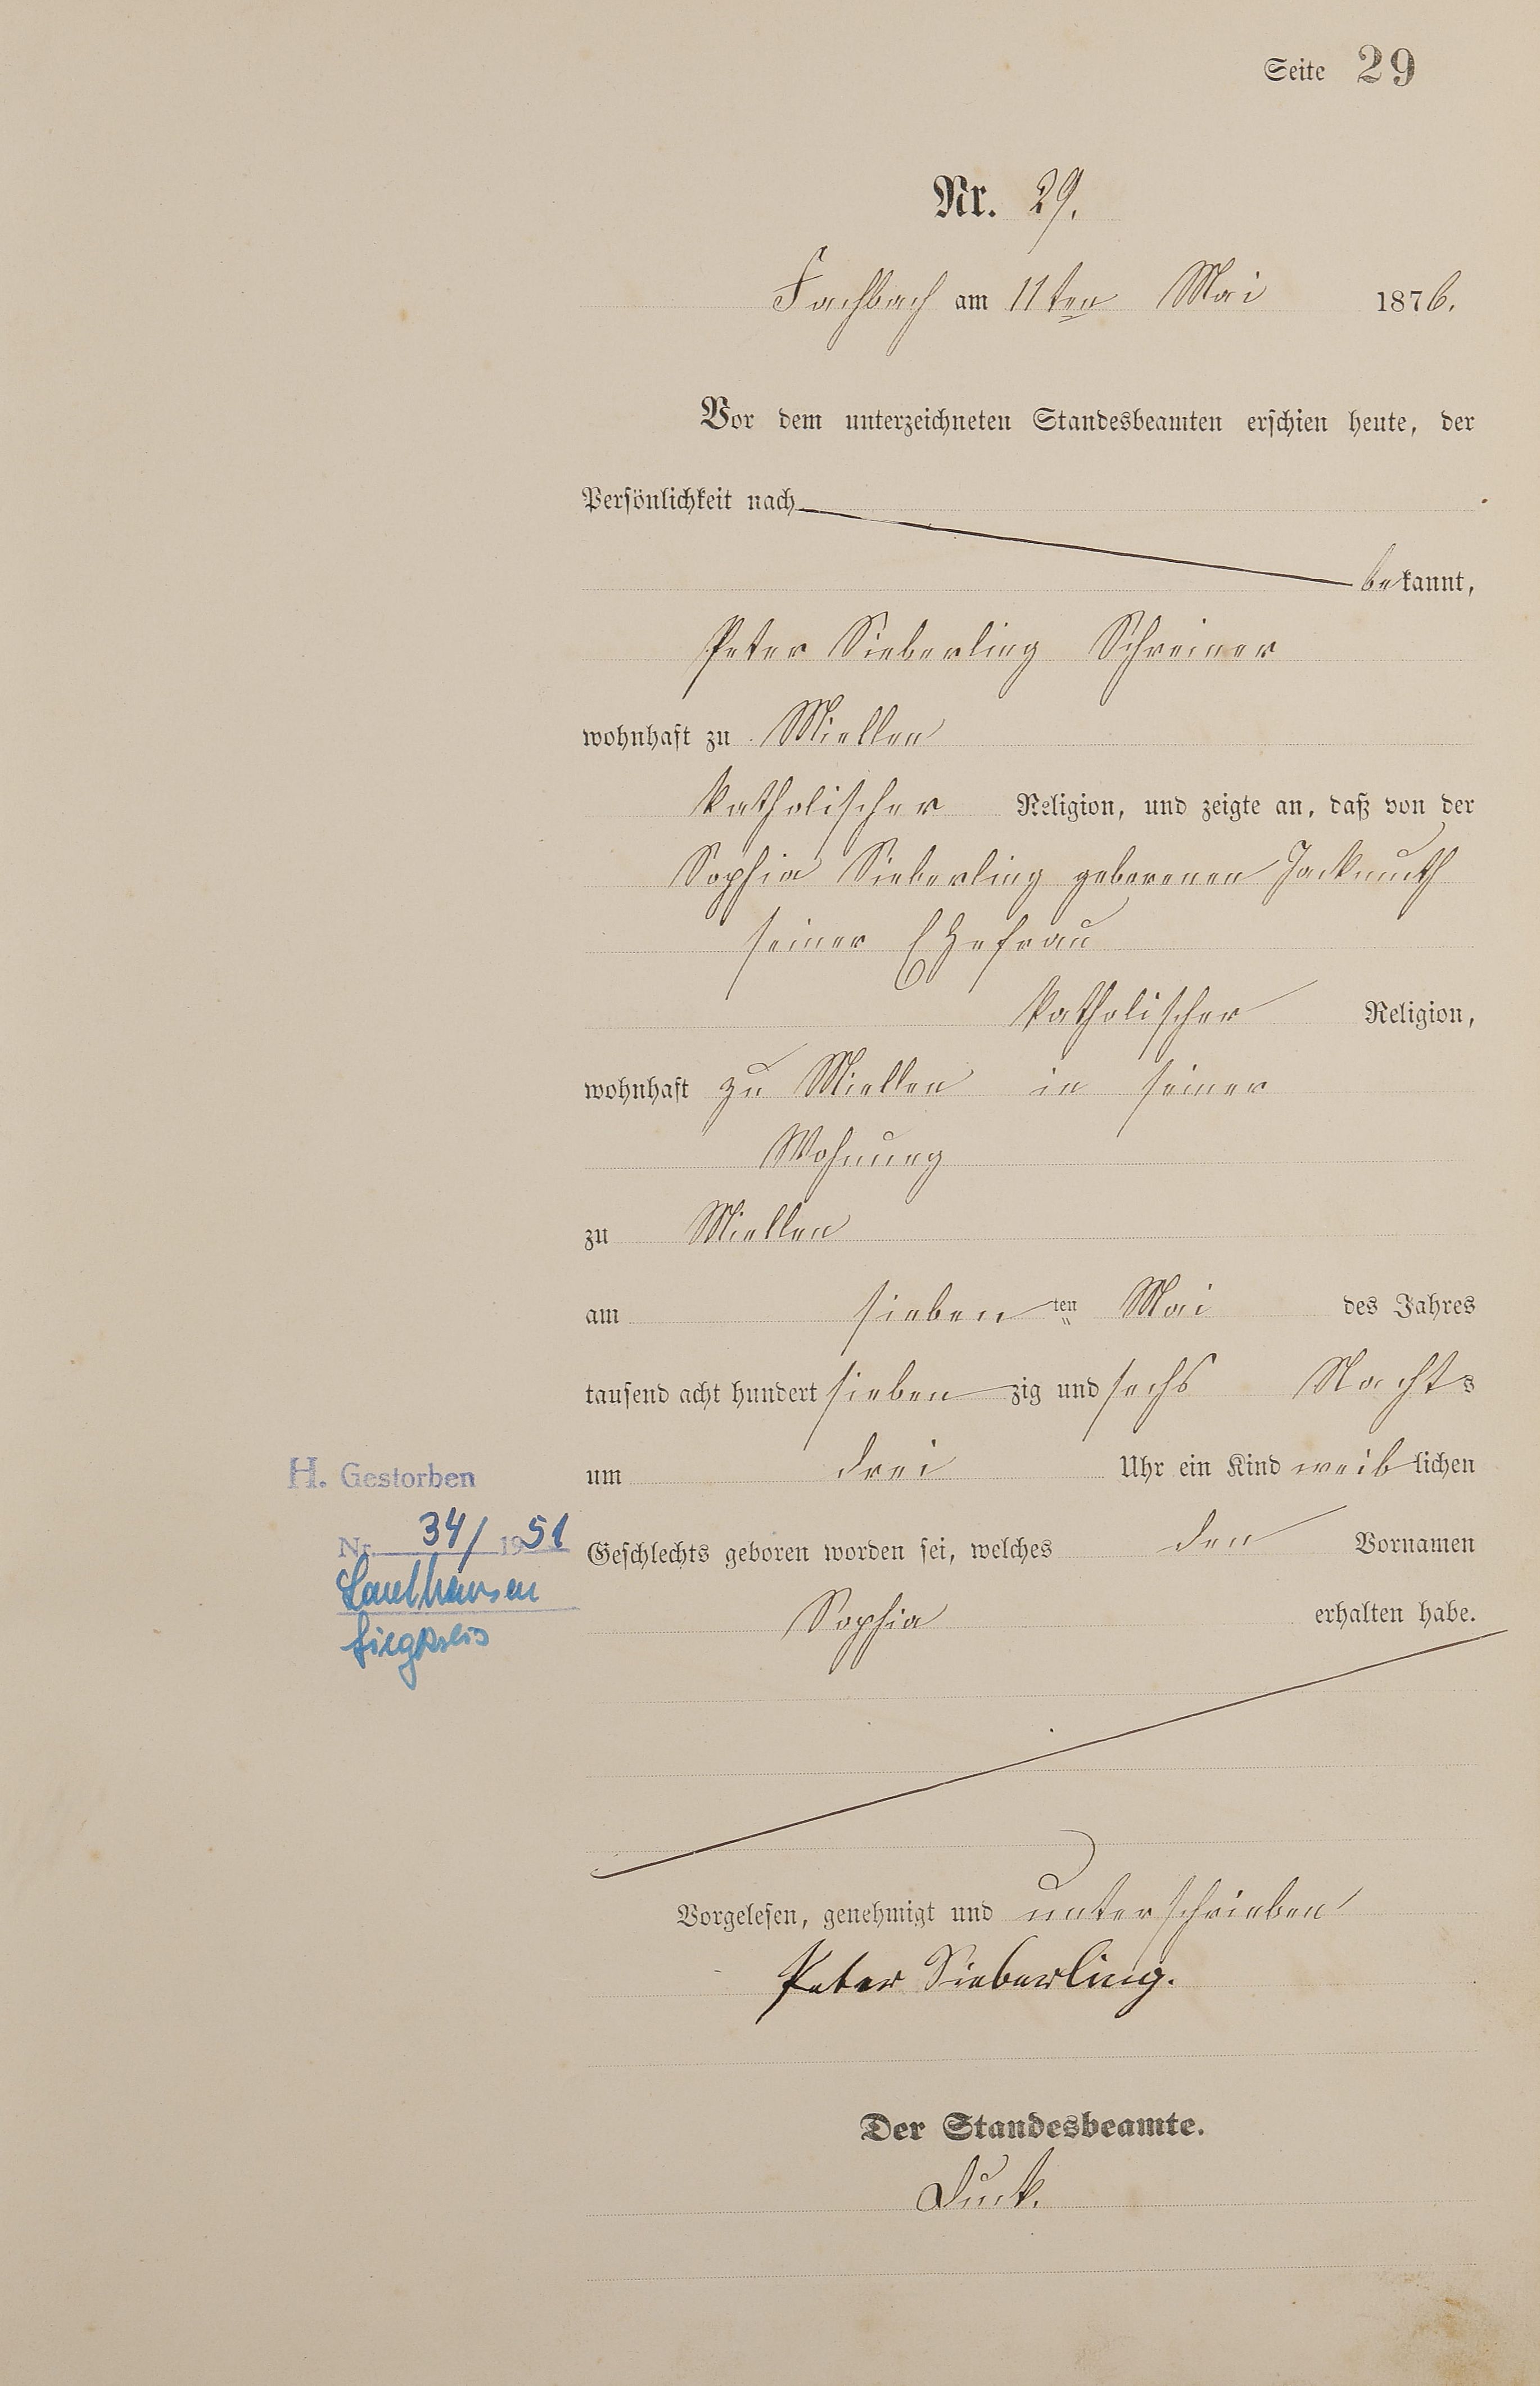 Seite 29
Nr. 29.
Fachbach am 11ten Mai 1876.
Vor dem unterzeichneten Standesbeamten erschien heute, der
Persönlichkeit nach
bekannt,
Peter Sieberling Schreiner
wohnhaft zu Miellen
katholischer Religion, und zeigte an, daß von der
Sophia Sieberling geborenen Jackmuth
seiner Ehefrau
katholischer Religion,
wohnhaft zu Miellen in seiner
Wohnung
zu Miellen
am sieben ten Mai des Jahres
tausend acht hundert siebenzig und sechs Nachts
um drei Uhr ein Kind weiblichen
Geschlechts geboren worden sei, welches den Vornamen
Sophia erhalten habe.
H. Gestorben
Nr. 34/1951
Lauthausen
Siegkreis
Vorgelesen, genehmigt und unterschrieben
Peter Sieberling.
Der Standesbeamte.